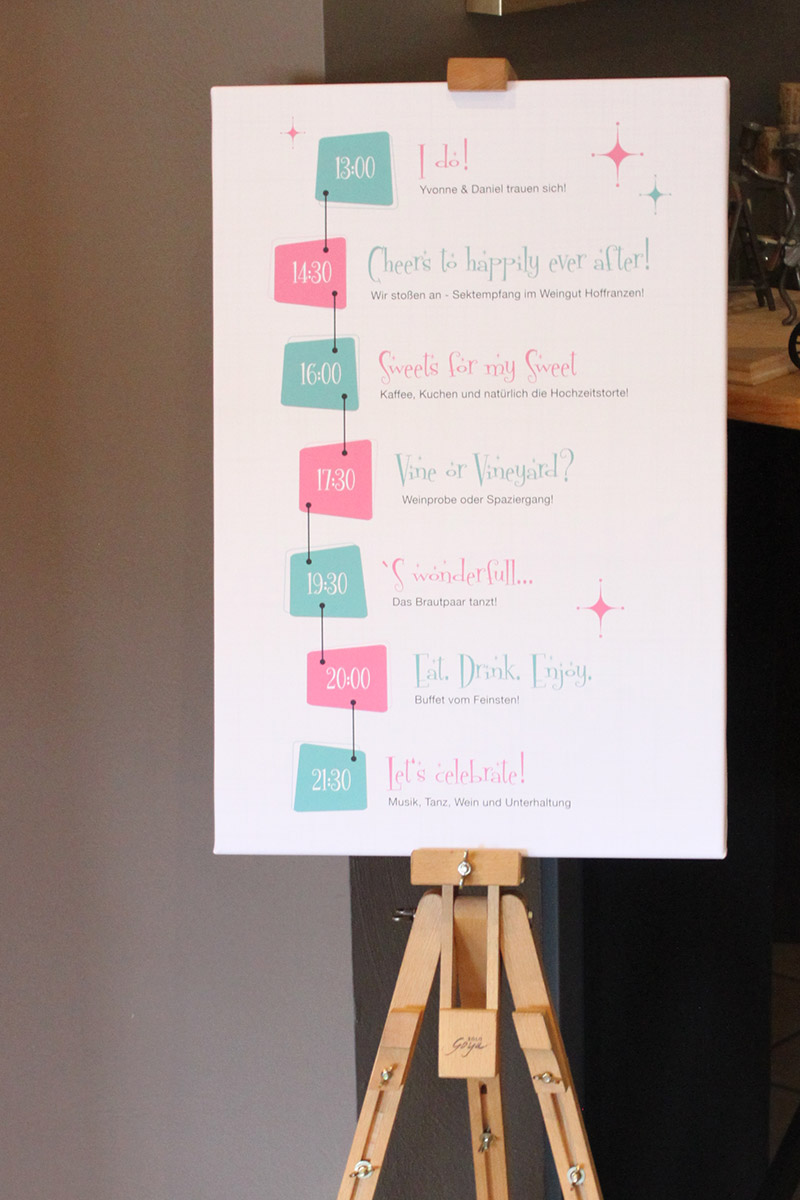 13:00
I do!
Yvonne & Daniel trauen sich!
14:30
Cheers to happily ever after!
Wir stoßen an - Sektempfang im Weingut Hoffranzen!
16:00
Sweets for my Sweet
Kaffee, Kuchen und natürlich die Hochzeitstorte!
17:30
Vine or Vineyard?
Weinprobe oder Spaziergang!
19:30
`S wonderfull...
Das Brautpaar tanzt!
20:00
Eat. Drink. Enjoy.
Buffet vom Feinsten!
21:30
Let's celebrate!
Musik, Tanz, Wein und Unterhaltung
Goya